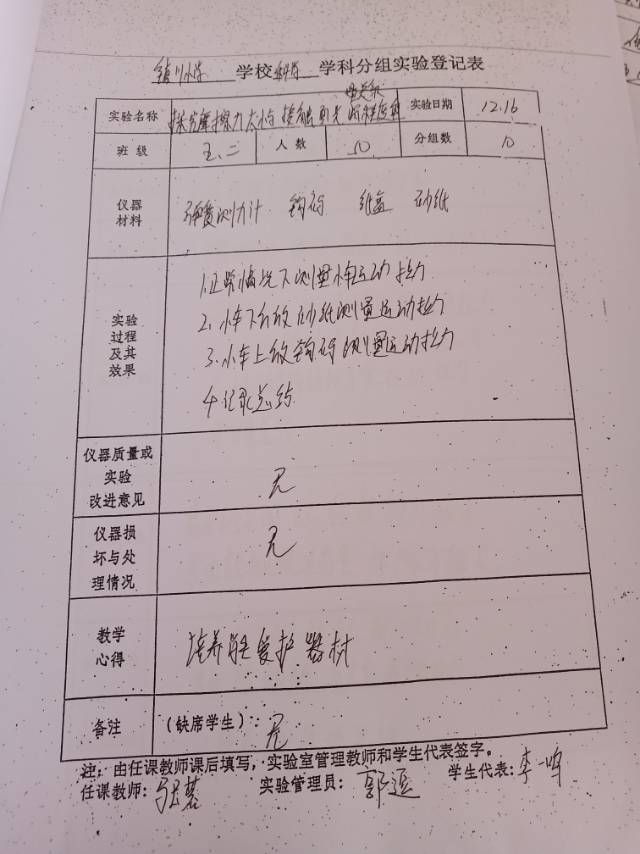 镇川小学 学校 科学 学科分组实验登记表
实验名称 探究摩擦力大小与接触面光滑程度的关系 实验日期 12.16
班级 五.二 人数 50 分组数 10
仪器材料 弹簧测力计 钩码 纸盒 砂纸
实验过程及其效果
1.正常情况下测量小车运动拉力
2.小车下方放砂纸测量运动拉力
3.小车上放钩码测量运动拉力
4.记录总结
仪器质量或实验改进意见 无
仪器损坏与处理情况 无
教学心得 培养学生爱护器材
备注 (缺席学生):无
注:由任课教师课后填写,实验室管理教师和学生代表签字。
任课教师: 实验管理员:郭 学生代表:李一鸣